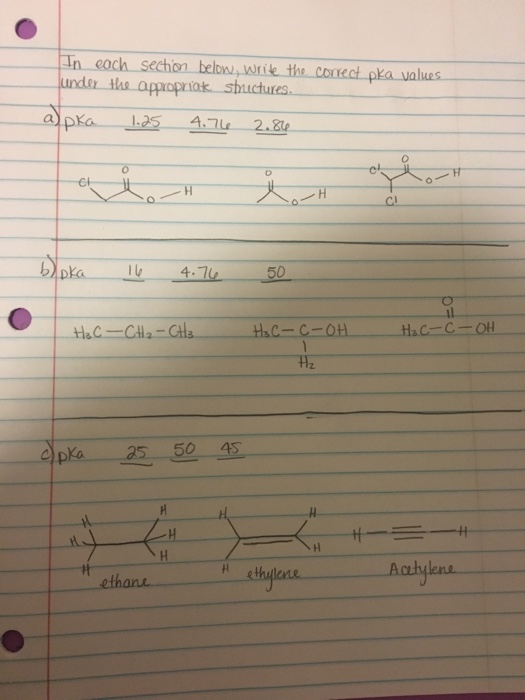 In each section below, write the correct pka values
under the appropriate structures.
a) pka 1.25 4.76 2.86
Cl O O H
O O H
Cl O O H Cl
b) pka 16 4.76 50
H3C-CH2-CH3
H3C-C-OH
H2
O
H3C-C-OH
c) pka 25 50 45
H H H H H H
H H H H
H H
ethane ethylene Acetylene